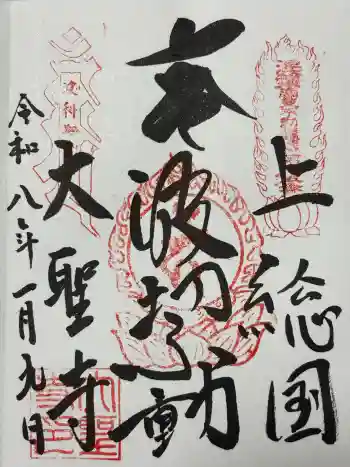 上総国
奉
波切不動
大聖寺
令和八年一月九日